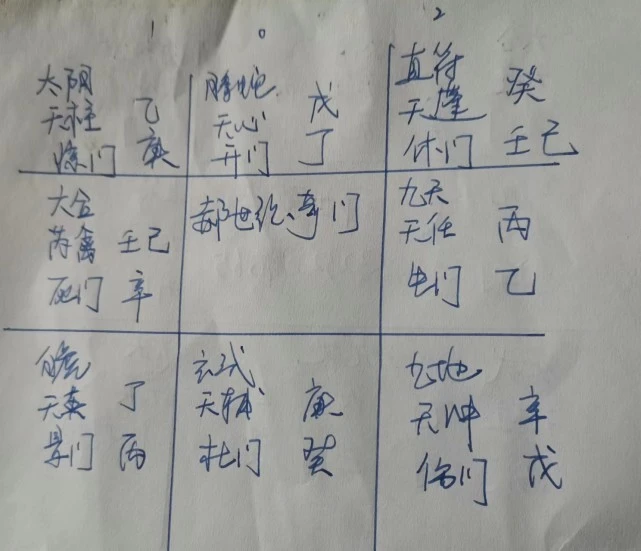 1 0 2
太阴
天柱 乙
惊门 庚
螣蛇
天心 戊
开门 丁
直符
天蓬 癸
休门 壬己
芮禽 壬己
死门 辛
九天
天任 丙
生门 乙
白虎
天英 丁
景门 丙
玄武
天辅 庚
杜门 癸
九地
天冲 辛
伤门 戊